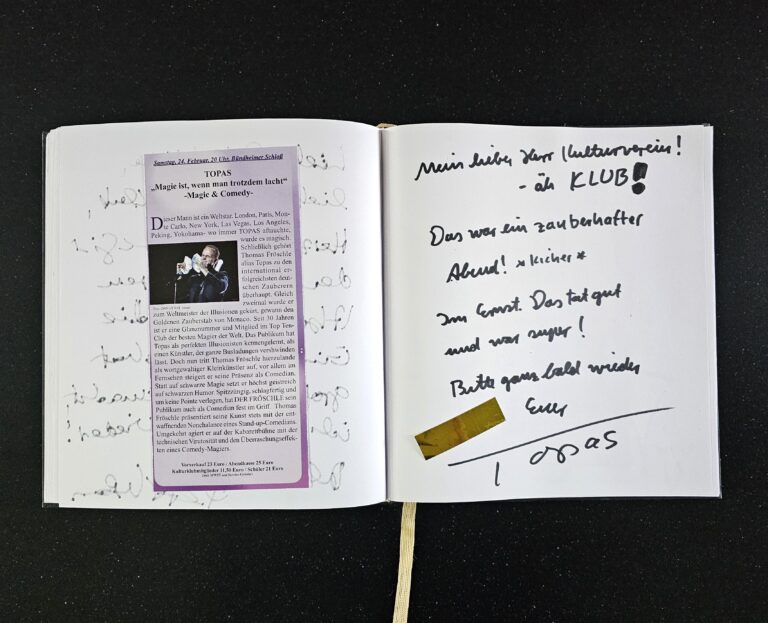 Samstag, 24. Februar, 20 Uhr, Bündheimer Schloß
TOPAS
„Magie ist, wenn man trotzdem lacht“
-Magic & Comedy-
Dieser Mann ist ein Weltstar. London, Paris, Mon-
te Carlo, New York, Las Vegas, Los Angeles,
Peking, Yokohama- wo immer TOPAS auftauchte,
wurde es magisch.
Schließlich gehört
Thomas Fröschle
alias Topas zu den
international er-
folgreichsten deut-
schen Zauberern
überhaupt. Gleich
zweimal wurde er
zum Weltmeister der Illusionen gekürt, gewann den
Goldenen Zauberstab von Monaco. Seit 30 Jahren
ist er eine Glanznummer und Mitglied im Top Ten-
Club der besten Magier der Welt. Das Publikum hat
Topas als perfekten Illusionisten kennengelernt, als
einen Künstler, der ganze Busladungen verschwinden
lässt. Doch nun tritt Thomas Fröschle hierzulande
als wortgewaltiger Kleinkünstler auf, vor allem im
Fernsehen steigert er seine Präsenz als Comedian.
Statt auf schwarze Magie setzt er höchst geistreich
auf schwarzen Humor. Spitzzüngig, schlagfertig und
um keine Pointe verlegen, hat DER FRÖSCHLE sein
Publikum auch als Comedian fest im Griff. Thomas
Fröschle präsentiert seine Kunst stets mit der ent-
waffnenden Nonchalance eines Stand-up-Comedians.
Umgekehrt agiert er auf der Kabarettbühne mit der
technischen Virtuosität und den Überraschungseffek-
ten eines Comedy-Magiers.
Vorverkauf 23 Euro / Abendkasse 25 Euro
Kulturklubmitglieder 11,50 Euro / Schüler 21 Euro
Mein lieber Herr Kulturverein!
- äh KLUB!
Das war ein zauberhafter
Abend! *kicher*
Im Ernst. Das tat gut
und war super!
Bitte ganz bald wieder
Euer
Topas